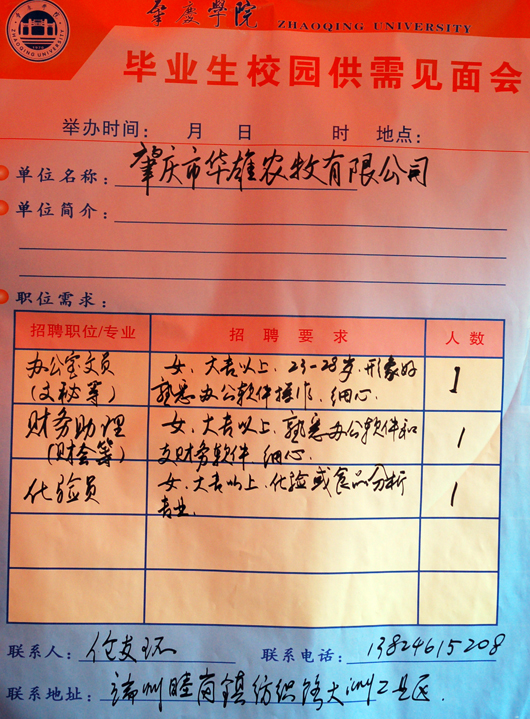 肇慶學院 ZHAOQING UNIVERSITY
毕业生校园供需见面会
举办时间： 月 日 时 地点：
单位名称： 肇庆市华雄农牧有限公司
单位简介：
职位需求：
招聘职位/专业 招聘要求 人数
办公室文员 女、大专以上、23-28岁、形象好
(文秘等) 熟悉办公软件操作、细心. 1
财务助理 女、大专以上、熟悉办公软件和
(财会等) 财务软件 细心. 1
化验员 女、大专以上、化验或食品分析 1
专业.
联系人： 联系电话： 13824615208
联系地址： 端州睦岗镇纺织路大洲工业区.